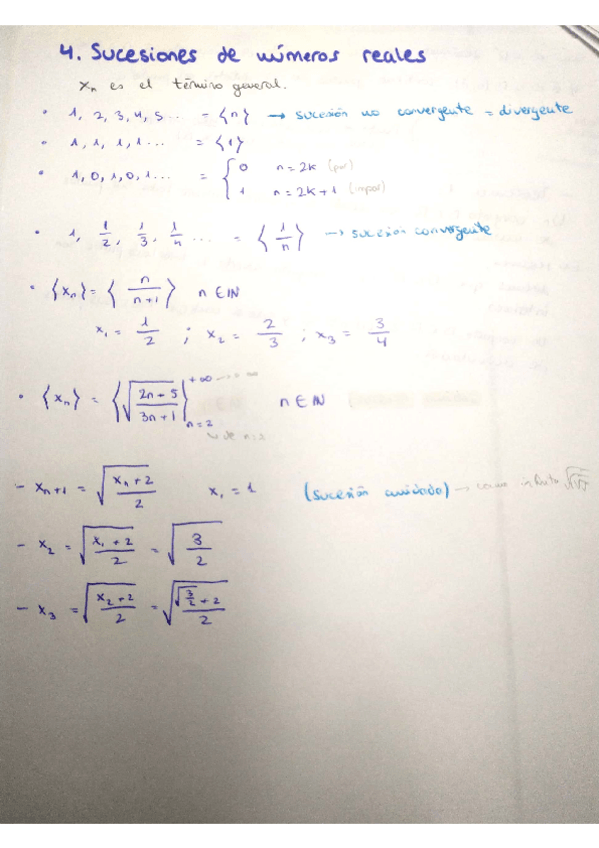 4. Sucesiones de números reales
xₙ es el término general.
• 1, 2, 3, 4, 5... = {n} → sucesión no convergente = divergente
• 1, 1, 1, 1... = {1}
• 1, 0, 1, 0, 1... = { 0 n = 2k (par)
1 n = 2k + 1 (impar)
• 1, 1/2, 1/3, 1/n ... = {1/n} → sucesión convergente
• {xₙ} = {n/(n+1)} n ∈ IN
x₁ = 1/2 ; x₂ = 2/3 ; x₃ = 3/4
• {xₙ} = {√((2n+5)/(3n+1))}ₙ₌₂^+∞ n ∈ IN
- xₙ₊₁ = √((xₙ+2)/2) x₁ = 1 (sucesión anidado) → como
- x₂ = √((x₁+2)/2) = √(3/2)
- x₃ = √((x₂+2)/2) = √((√(3/2)+2)/2)